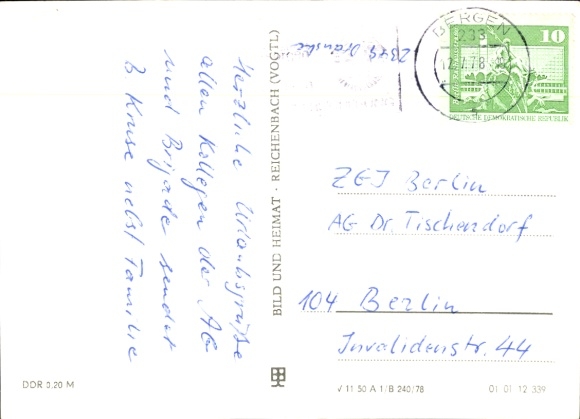 Herzliche Urlaubsgrüße
allen Kollegen der AG
und Brigade sendet
B Kruse nebst Familie
2345 Dranske
BILD UND HEIMAT · REICHENBACH (VOGTL)
BERGEN
233
10
DEUTSCHE DEMOKRATISCHE REPUBLIK
ZGJ Berlin
AG Dr. Tischendorf
104 Berlin
Invalidenstr. 44
DDR 0,20 M
V 11 50 A 1/B 240/78
01 01 12 339